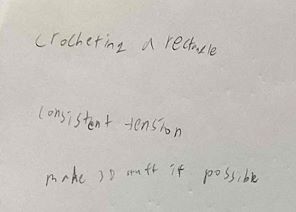 Crocheting a rectangle
consistent tension
make 30 if possible